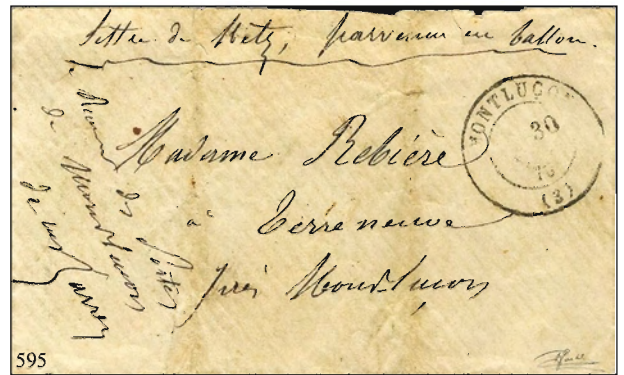 Lettre de Metz, parvenue en ballon.
MONTLUÇON
30
(3)
Madame Rebière
à Terreneuve
près Montluçon
des Postes
de Montluçon
595